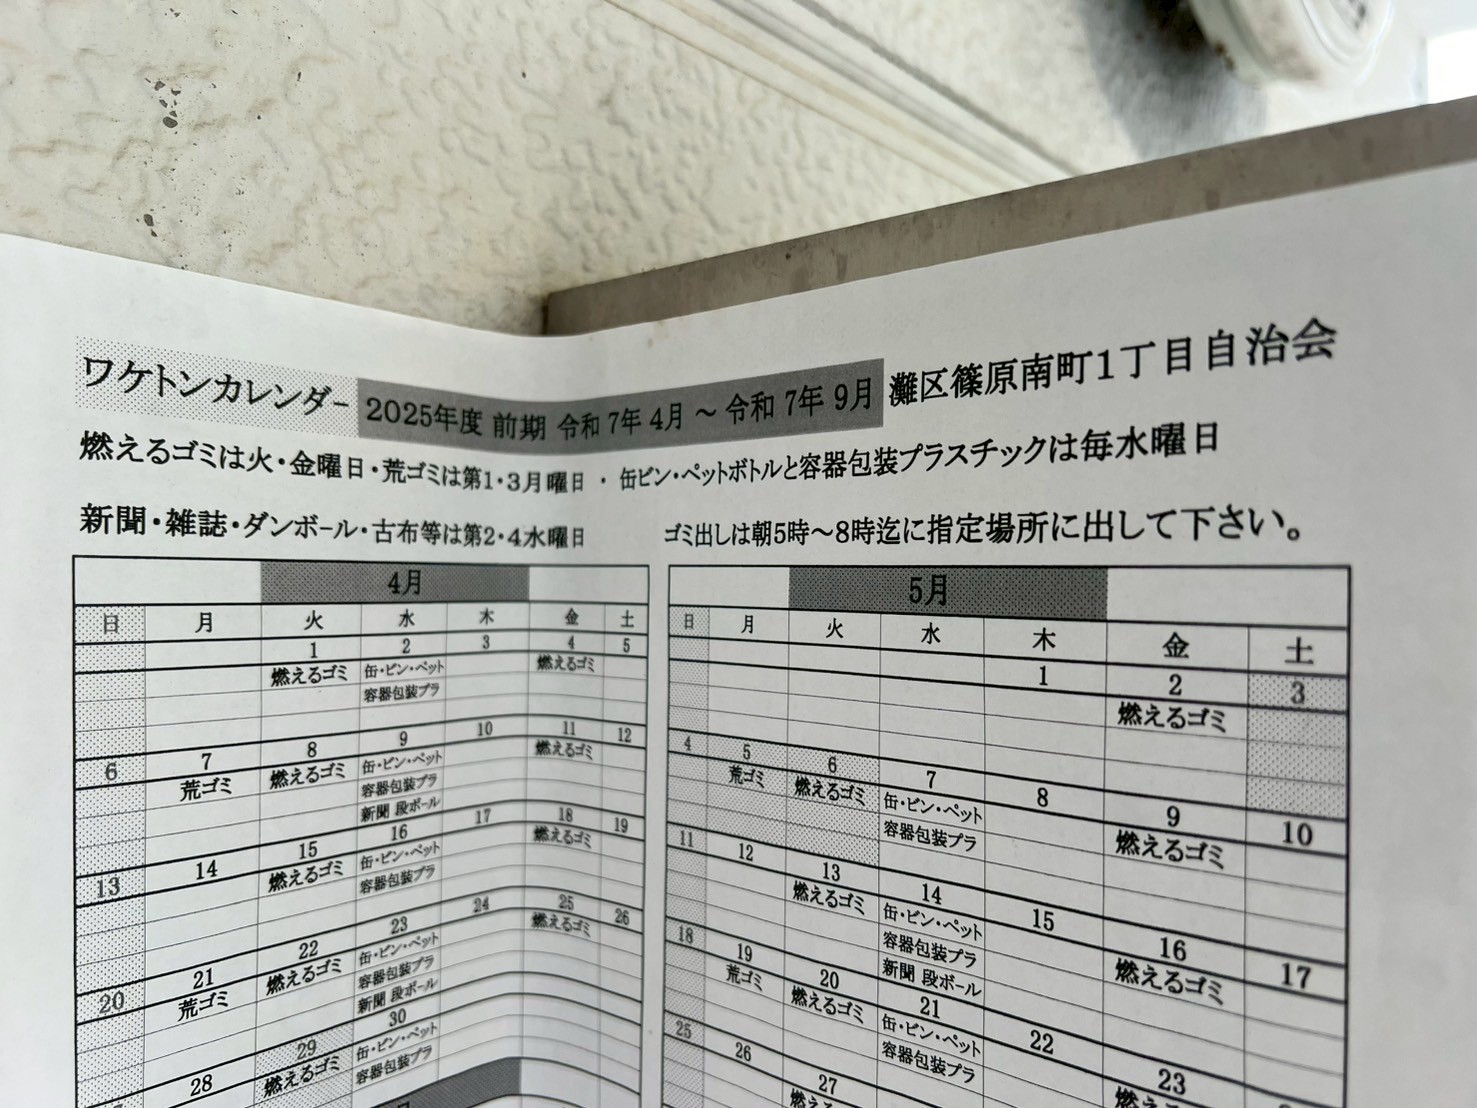 ワケトンカレンダー 2025年度 前期 令和7年 4月 ～ 令和 7年 9月 灘区篠原南町1丁目自治会
燃えるゴミは火・金曜日・荒ゴミは第1・3月曜日 ・ 缶ビン・ペットボトルと容器包装プラスチックは毎水曜日
新聞・雑誌・ダンボール・古布等は第2・4水曜日 ゴミ出しは朝5時～8時迄に指定場所に出して下さい。
4月
日 月 火 水 木 金 土
1 2 3 4 5
燃えるゴミ 缶・ビン・ペット 燃えるゴミ
容器包装プラ
6 7 8 9 10 11 12
荒ゴミ 燃えるゴミ 缶・ビン・ペット 燃えるゴミ
容器包装プラ
新聞 段ボール
13 14 15 16 17 18 19
燃えるゴミ 缶・ビン・ペット 燃えるゴミ
容器包装プラ
20 21 22 23 24 25 26
荒ゴミ 燃えるゴミ 缶・ビン・ペット 燃えるゴミ
容器包装プラ
新聞 段ボール
28 29 30
燃えるゴミ 缶・ビン・ペット
容器包装プラ
5月
日 月 火 水 木 金 土
1 2 3
燃えるゴミ
4 5 6 7 8 9 10
荒ゴミ 燃えるゴミ 缶・ビン・ペット 燃えるゴミ
容器包装プラ
11 12 13 14 15 16 17
燃えるゴミ 缶・ビン・ペット 燃えるゴミ
容器包装プラ
新聞 段ボール
18 19 20 21 22 23
荒ゴミ 燃えるゴミ 缶・ビン・ペット
容器包装プラ
25 26 27